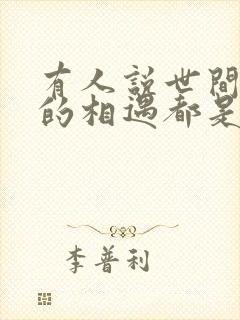 有人説世間
的相遇都是
李普利